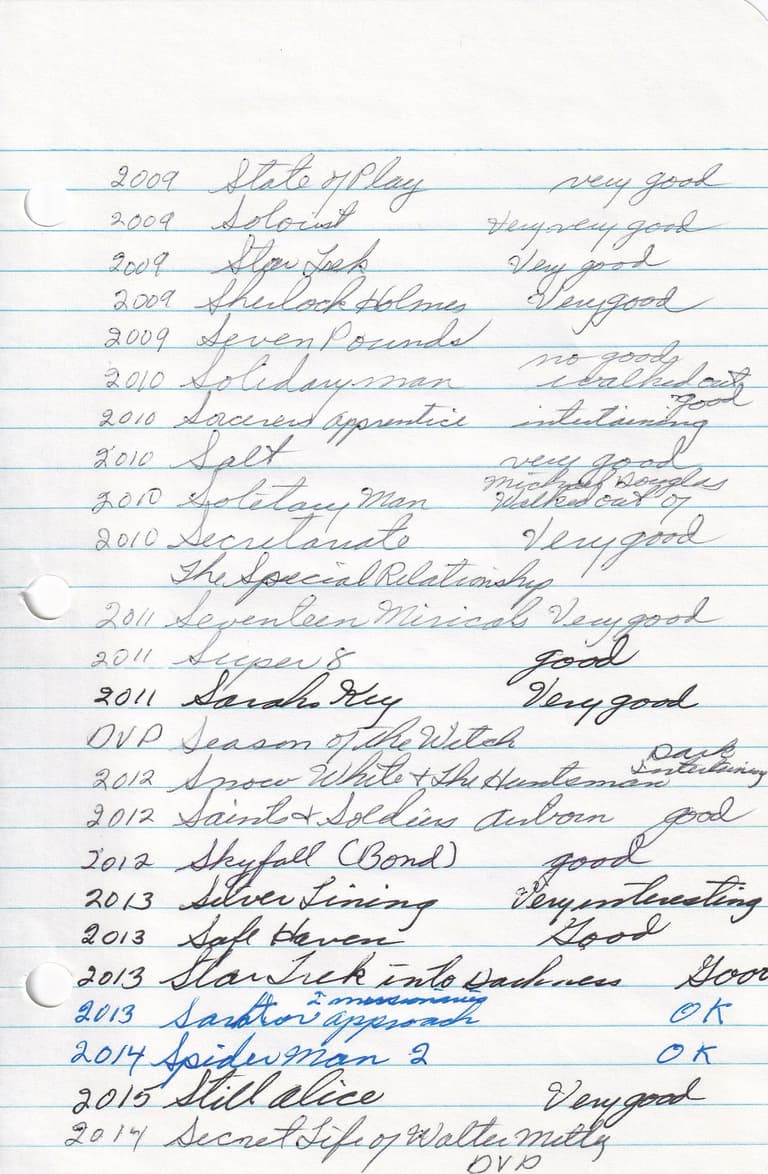 2009 State of Play very good
2009 Soloist Very very good
2009 Star Trek Very good
2009 Sherlock Holmes Very good
2009 Seven Pounds
no good
2010 Solidary man walked out
good
2010 Sorcerers apprentice intertaining
2010 Salt very good
Michael Douglas
2010 Soletary Man Walked out of
2010 Secretariate Very good
The Special Relationship
2011 Seventeen Miricals Very good
2011 Super 8 good
2011 Sarahs Key Very good
DVD Season of the Witch
Dark
2012 Snow White & The Huntsman Intertaining
2012 Saints & Soldiers Airborn good
2012 Skyfall (Bond) good
2013 Silver Lining Very interesting
2013 Safe Haven Good
2013 Star Trek into Darkness Good
2 missionaries
2013 Saratov approach OK
2014 Spider Man 2 OK
2015 Still alice Very good
2014 Secret Life of Walter Mitty
DVD